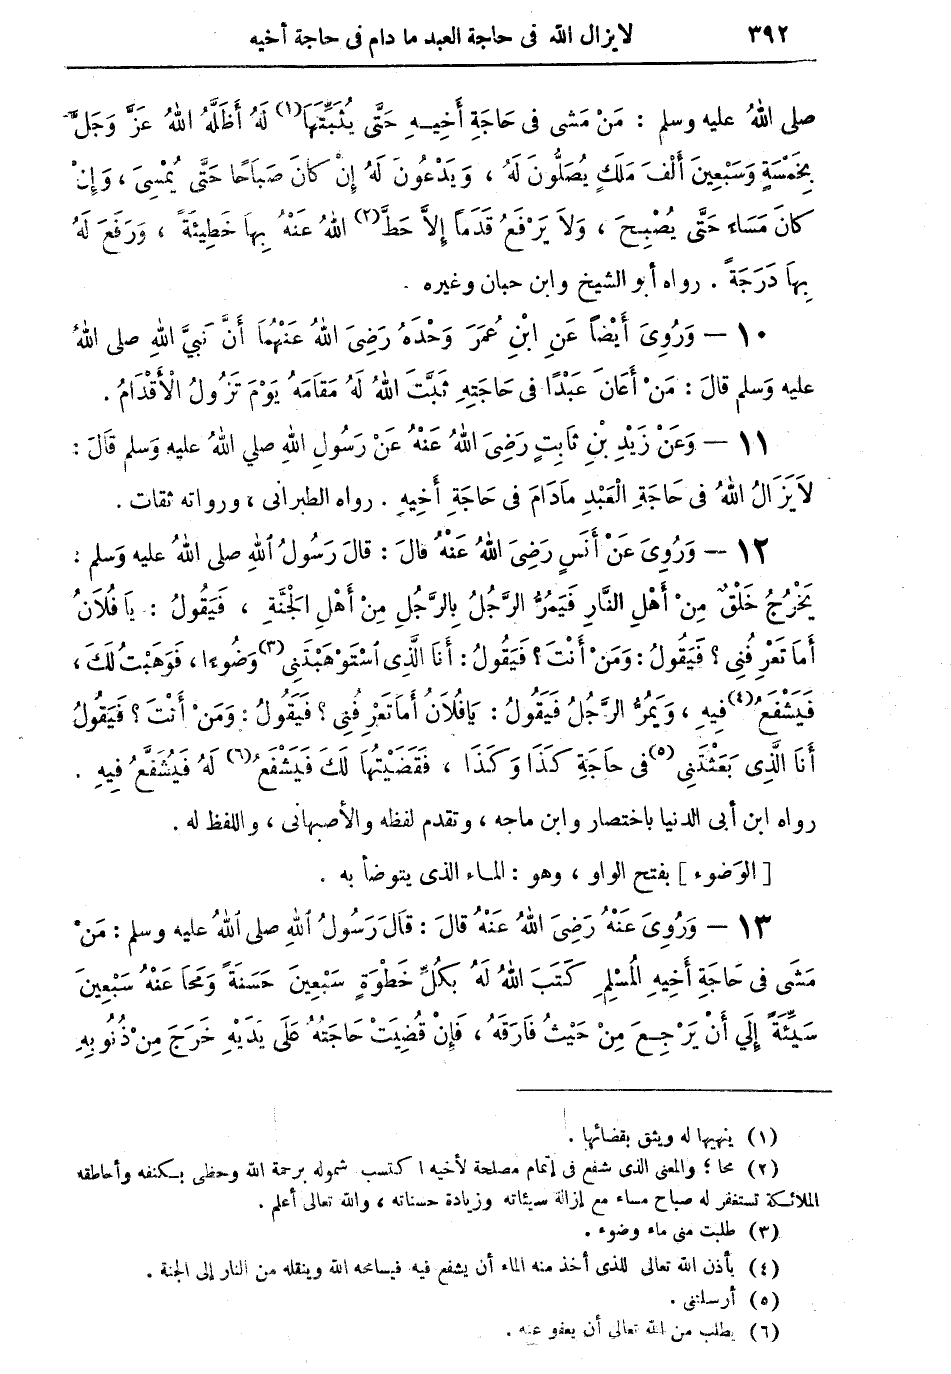 ٣٩٢ لايزال الله فى حاجة العبد ما دام فى حاجة أخيه
صلى اللهُ عليه وسلم : مَنْ مَشى فى حَاجَةِ أَخِيـهِ حَتَّى يُثْبِتَهَا(١) لَهُ أَظَلَّهُ اللهُ عَزَّ وَجَلَّ
بِخَمْسَةٍ وَسَبْعِينَ أَلْفَ مَلَكٍ يُصَلُّونَ لَهُ ، وَيَدْعُونَ لَهُ إِنْ كَانَ صَبَاحًا حَتَّى يُمْسِىَ ، وَإِنْ
كانَ مَسَاءً حَتَّى يُصْبِـحَ ، وَلاَ يَرْفَعُ قَدَماً إِلاَّ حَطَّ(٢) اللهُ عَنْهُ بِهاَ خَطِيئَةً ، وَرَفَعَ لَهُ
بِهاَ دَرَجَةً . رواه أبو الشيخ وابن حبان وغيره .
١٠ – وَرُوِىَ أَيْضاً عَنِ ابْنِ عُمَرَ وَحْدَهُ رَضِىَ اللهُ عَنْهُمَا أَنَّ نَبِيَّ اللهِ صلى اللهُ
عليه وَسلم قالَ : مَنْ أَعَانَ عَبْدًا فى حَاجَتِهِ ثَبَّتَ اللهُ لَهُ مَقَامَهُ يَوْمَ تَزُولُ الْأَقْدَامُ .
١١ – وَعَنْ زَيْدِ بْنِ ثَابِتٍ رَضِىَ اللهُ عَنْهُ عَنْ رَسُولِ اللهِ صلي اللهُ عليه وَسلم قَالَ :
لاَيَزَالُ اللهُ فى حَاجَةِ الْعَبْدِ مادَامَ فى حَاجَةِ أَخِيهِ . رواه الطبرانى ، ورواته ثقات .
١٢ – وَرُوِىَ عَنْ أَنَسٍ رَضِىَ اللهُ عَنْهُ قالَ : قالَ رَسُولُ اللهِ صلى اللهُ عليه وَسلم :
يَخْرُجُ خَلْقٌ مِنْ أَهْلِ النَّارِ فَيَمُرُّ الرَّجُلُ بِالرَّجُلِ مِنْ أَهْلِ الْجَنَّةِ ، فَيَقُولُ : يا فُلاَنُ
أَمَا تَعْرِفُنِي ؟ فَيَقُولُ : وَمَنْ أَنْتَ ؟ فَيَقُولُ : أَنَا الَّذِى اسْتَوْهَبْتَنِي(٣) وَضُوءًا ، فَوَهَبْتُ لَكَ ،
فَيَشْفَعُ(٤) فِيهِ ، وَيَمُرُّ الرَّجُلُ فَيَقُولُ : يَافُلاَنُ أَمَا تَعْرِفُنِي ؟ فَيَقُولُ : وَمَنْ أَنْتَ ؟ فَيَقُولُ
أَنَا الَّذِى بَعَثْتَنِي(٥) فى حَاجَةِ كَذَا وَكَذَا ، فَقَضَيْتُهَا لَكَ فَيَشْفَعُ(٦) لَهُ فَيُشَفَّعُ فِيهِ .
رواه ابن أبى الدنيا باختصار وابن ماجه ، وتقدم لفظه والأصبهانى ، واللفظ له .
[ الوَضوء ] بفتح الواو ، وهو : المـاء الذى يتوضأ به .
١٣ – وَرُوِىَ عَنْهُ رَضِىَ اللهُ عَنْهُ قالَ : قالَ رَسُولُ اللهِ صلى اللهُ عليه وسلم : مَنْ
مَشَى فى حَاجَةِ أَخِيهِ الْمُسْلِمِ كَتَبَ اللهُ لَهُ بِكُلِّ خَطْوَةٍ سَبْعِينَ حَسَنَةً وَمَحَا عَنْهُ سَبْعِينَ
سَيِّئَةً إِلَي أَنْ يَرْجِـعَ مِنْ حَيْثُ فَارَقَهُ ، فَإِنْ قُضِيَتْ حَاجَتُهُ عَلَى يَدَيْهِ خَرَجَ مِنْ ذُنُوبِهِ
(١) ينهيها له ويثق بقضائها .
(٢) محا ؛ والمعنى الذى شفع فى إتمام مصلحة لأخيه اكتسب شموله برحمة الله وحظى بكنفه وأحاطته
الملائكة تستغفر له صباح مساء مع إزالة سيئاته وزيادة حسناته ، والله تعالى أعلم .
(٣) طلبت منى ماء وضوء .
(٤) يأذن الله تعالى للذى أخذ منه الماء أن يشفع فيه فيسامحه الله وينقله من النار إلى الجنة .
(٥) أرسلتنى .
(٦) يطلب من الله تعالى أن يعفو عنه .